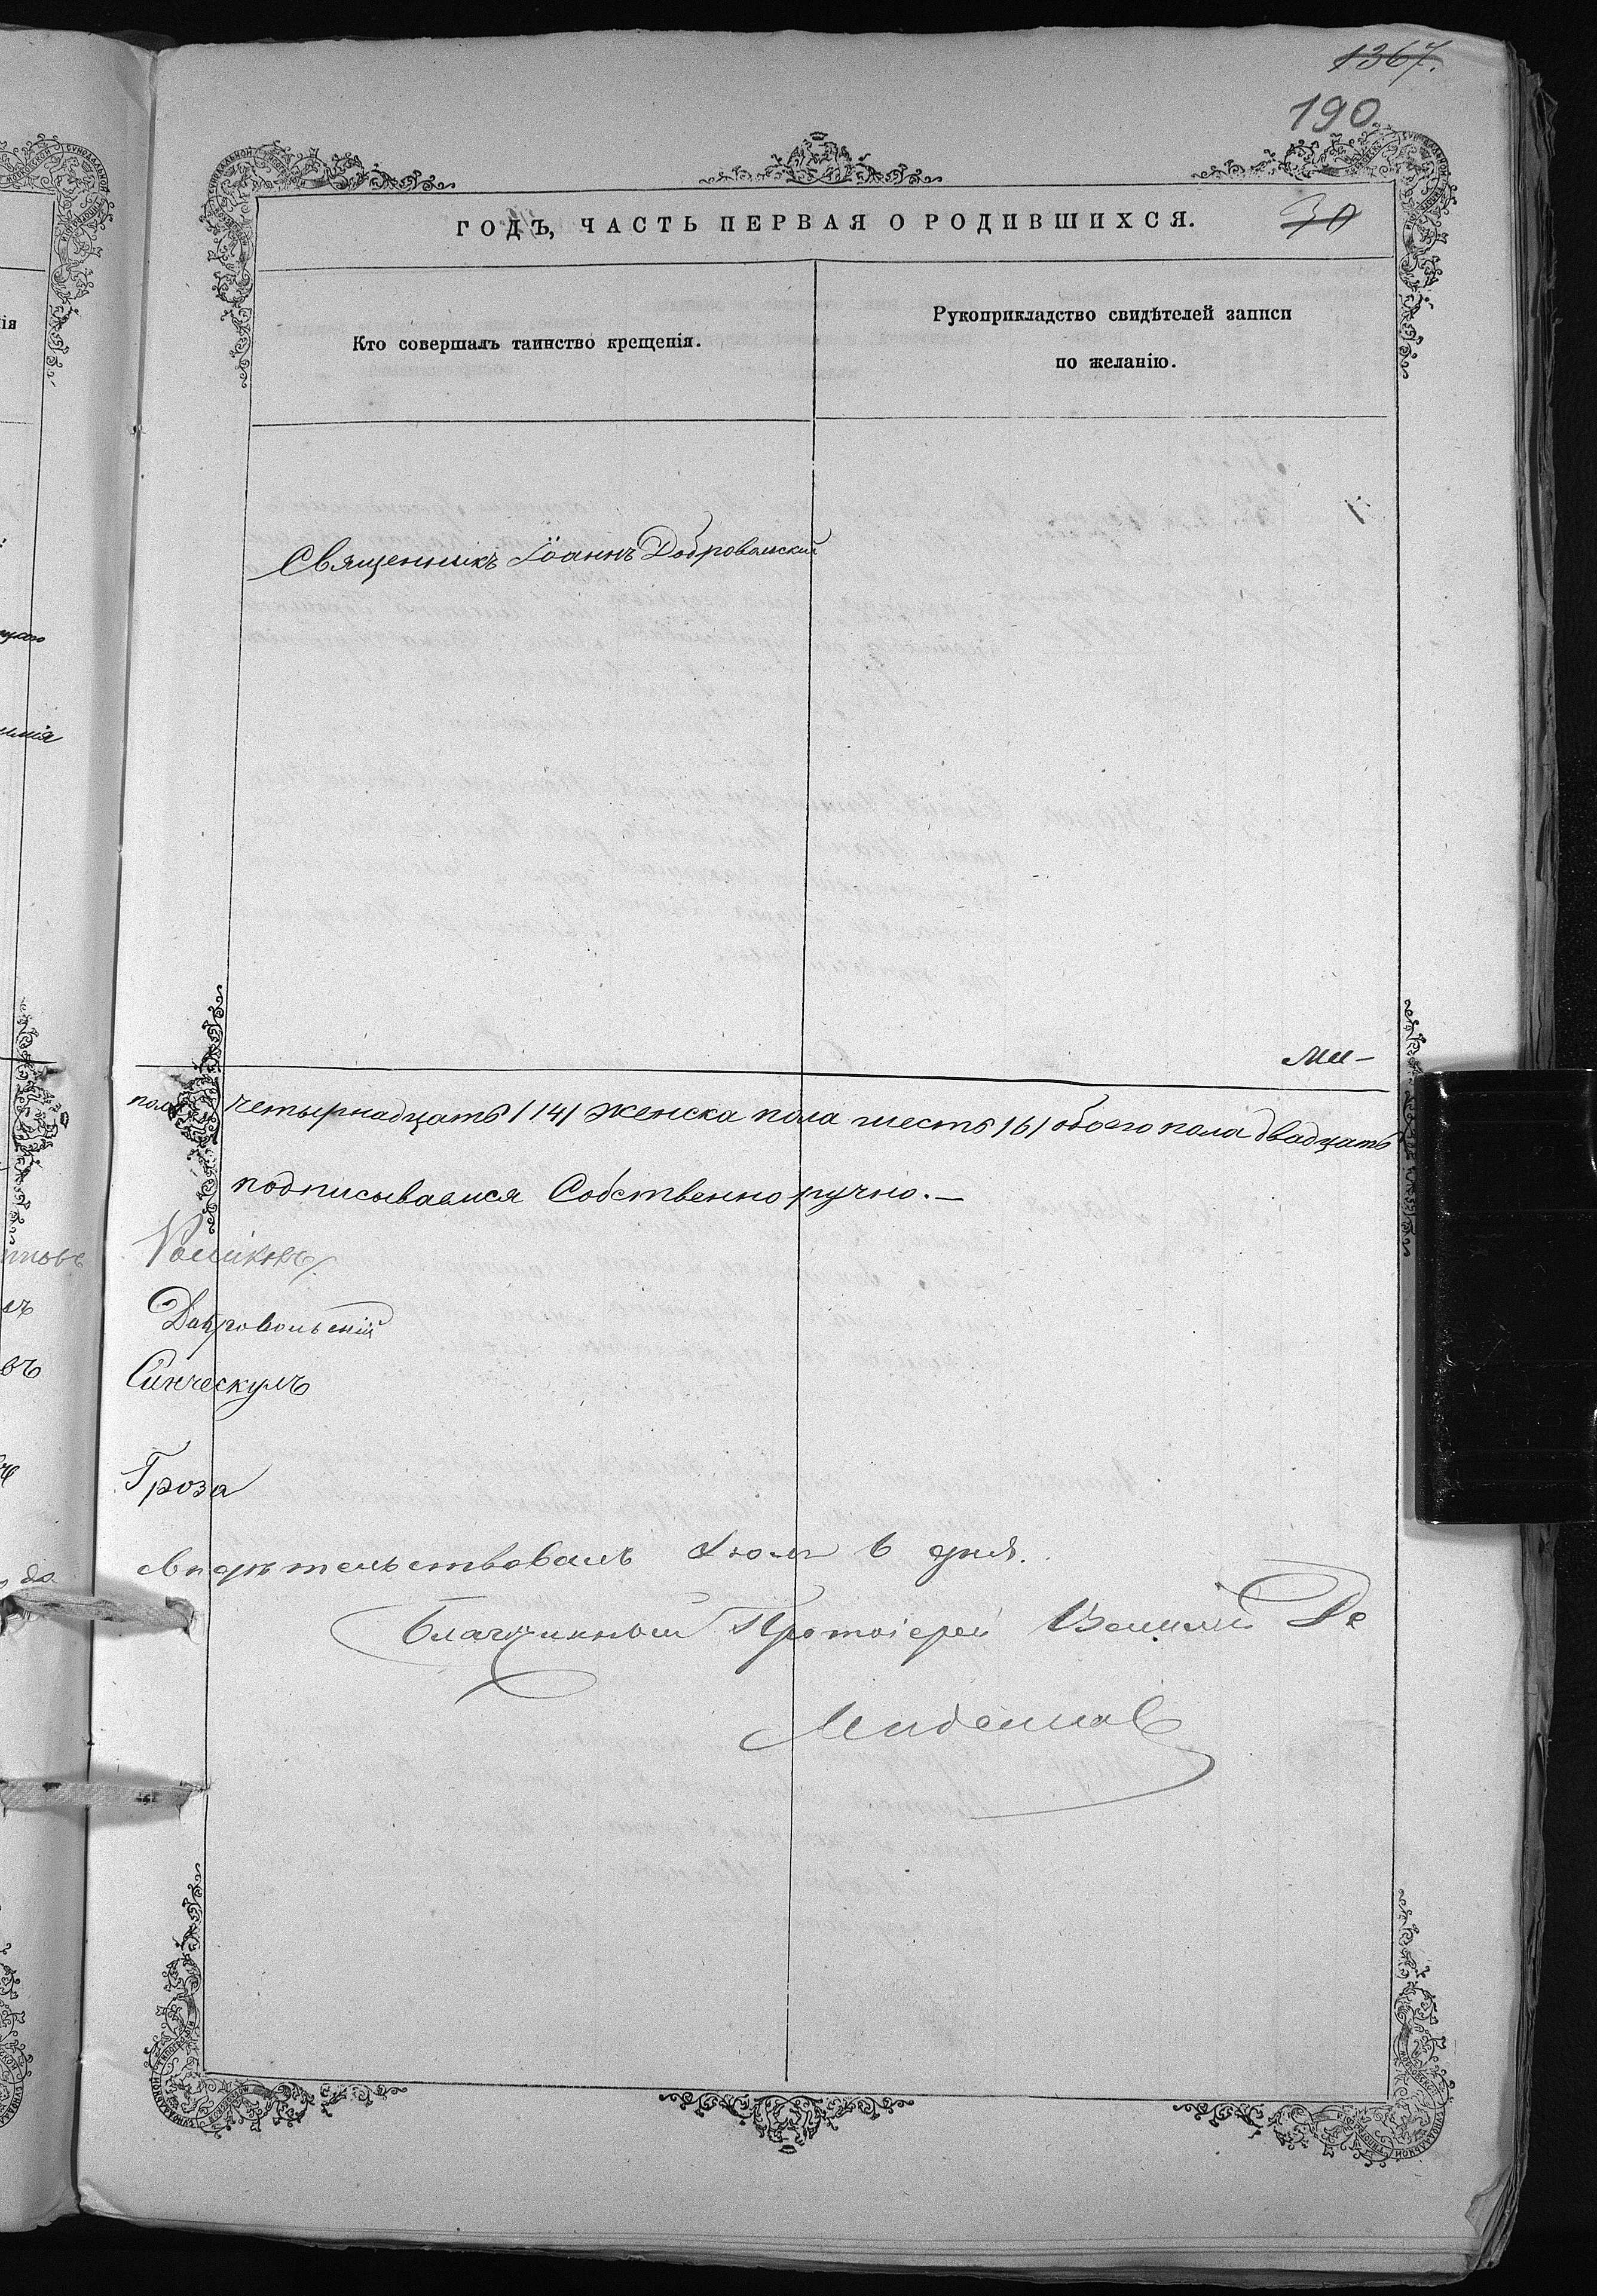 1367.
190.
ГОДЪ, ЧАСТЬ ПЕРВАЯ О РОДИВШИХСЯ.
30
Кто совершалъ таинство крещенія.
Рукоприкладство свидѣтелей записи
по желанію.
Священникъ Іоаннъ Добровольскій
ми-
пола четырнадцать /14/ женска пола шесть /6/ обоего пола двадцать
подписываемся Собственноручно. —
Добровольскій
Синческулъ
Гроза
Свидѣтельствовалъ 6 дня.
Благочинный Протоіерей